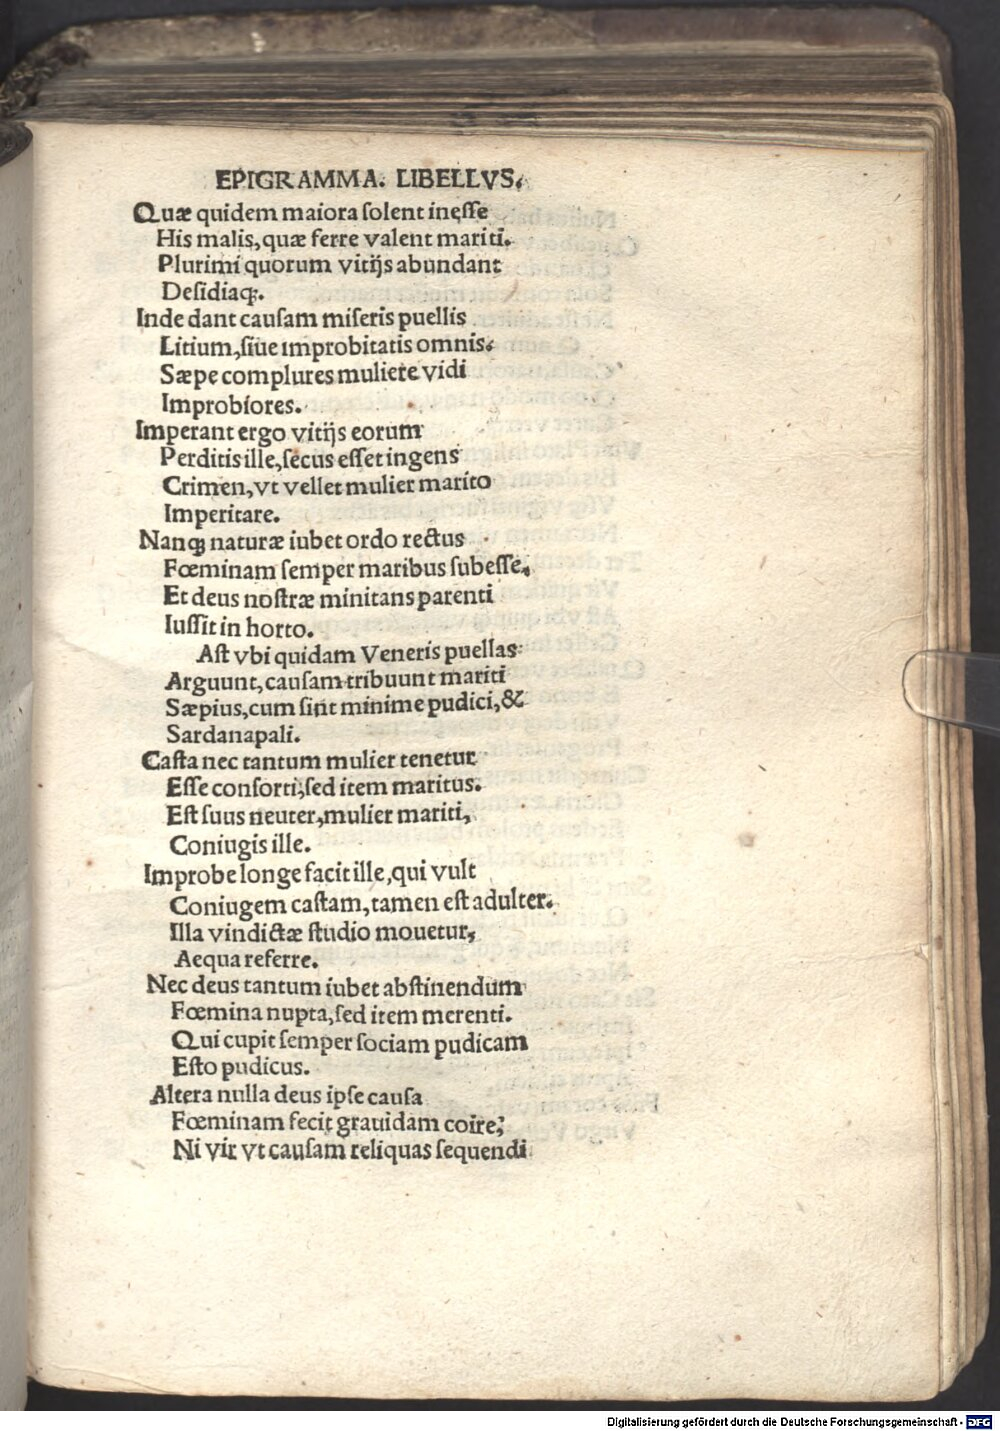 EPIGRAMMA. LIBELLVS.
Quæ quidem maiora ſolent ineſſe
His malis, quæ ferre valent mariti.
Plurimi quorum vitijs abundant
Deſidiaqꝫ.
Inde dant cauſam miſeris puellis
Litium, ſiue improbitatis omnis.
Sæpe complures muliere vidi
Improbiores.
Imperant ergo vitijs eorum
Perditis ille, ſecus eſſet ingens
Crimen, vt vellet mulier marito
Imperitare.
Nanqꝫ naturæ iubet ordo rectus
Fœminam ſemper maribus ſubeſſe,
Et deus noſtræ minitans parenti
Iuſſit in horto.
Aſt vbi quidam Veneris puellas
Arguunt, cauſam tribuunt mariti
Sæpius, cum ſint minime pudici, &
Sardanapali.
Caſta nec tantum mulier tenetur
Eſſe conſorti, ſed item maritus.
Eſt ſuus neuter, mulier mariti,
Coniugis ille.
Improbe longe facit ille, qui vult
Coniugem caſtam, tamen eſt adulter.
Illa vindictæ ſtudio mouetur,
Aequa referre.
Nec deus tantum iubet abſtinendum
Fœmina nupta, ſed item merenti.
Qui cupit ſemper ſociam pudicam
Eſto pudicus.
Altera nulla deus ipſe cauſa
Fœminam fecit grauidam coire,
Ni vir vt cauſam reliquas ſequendi
Digitalisierung gefördert durch die Deutsche Forschungsgemeinschaft - DFG